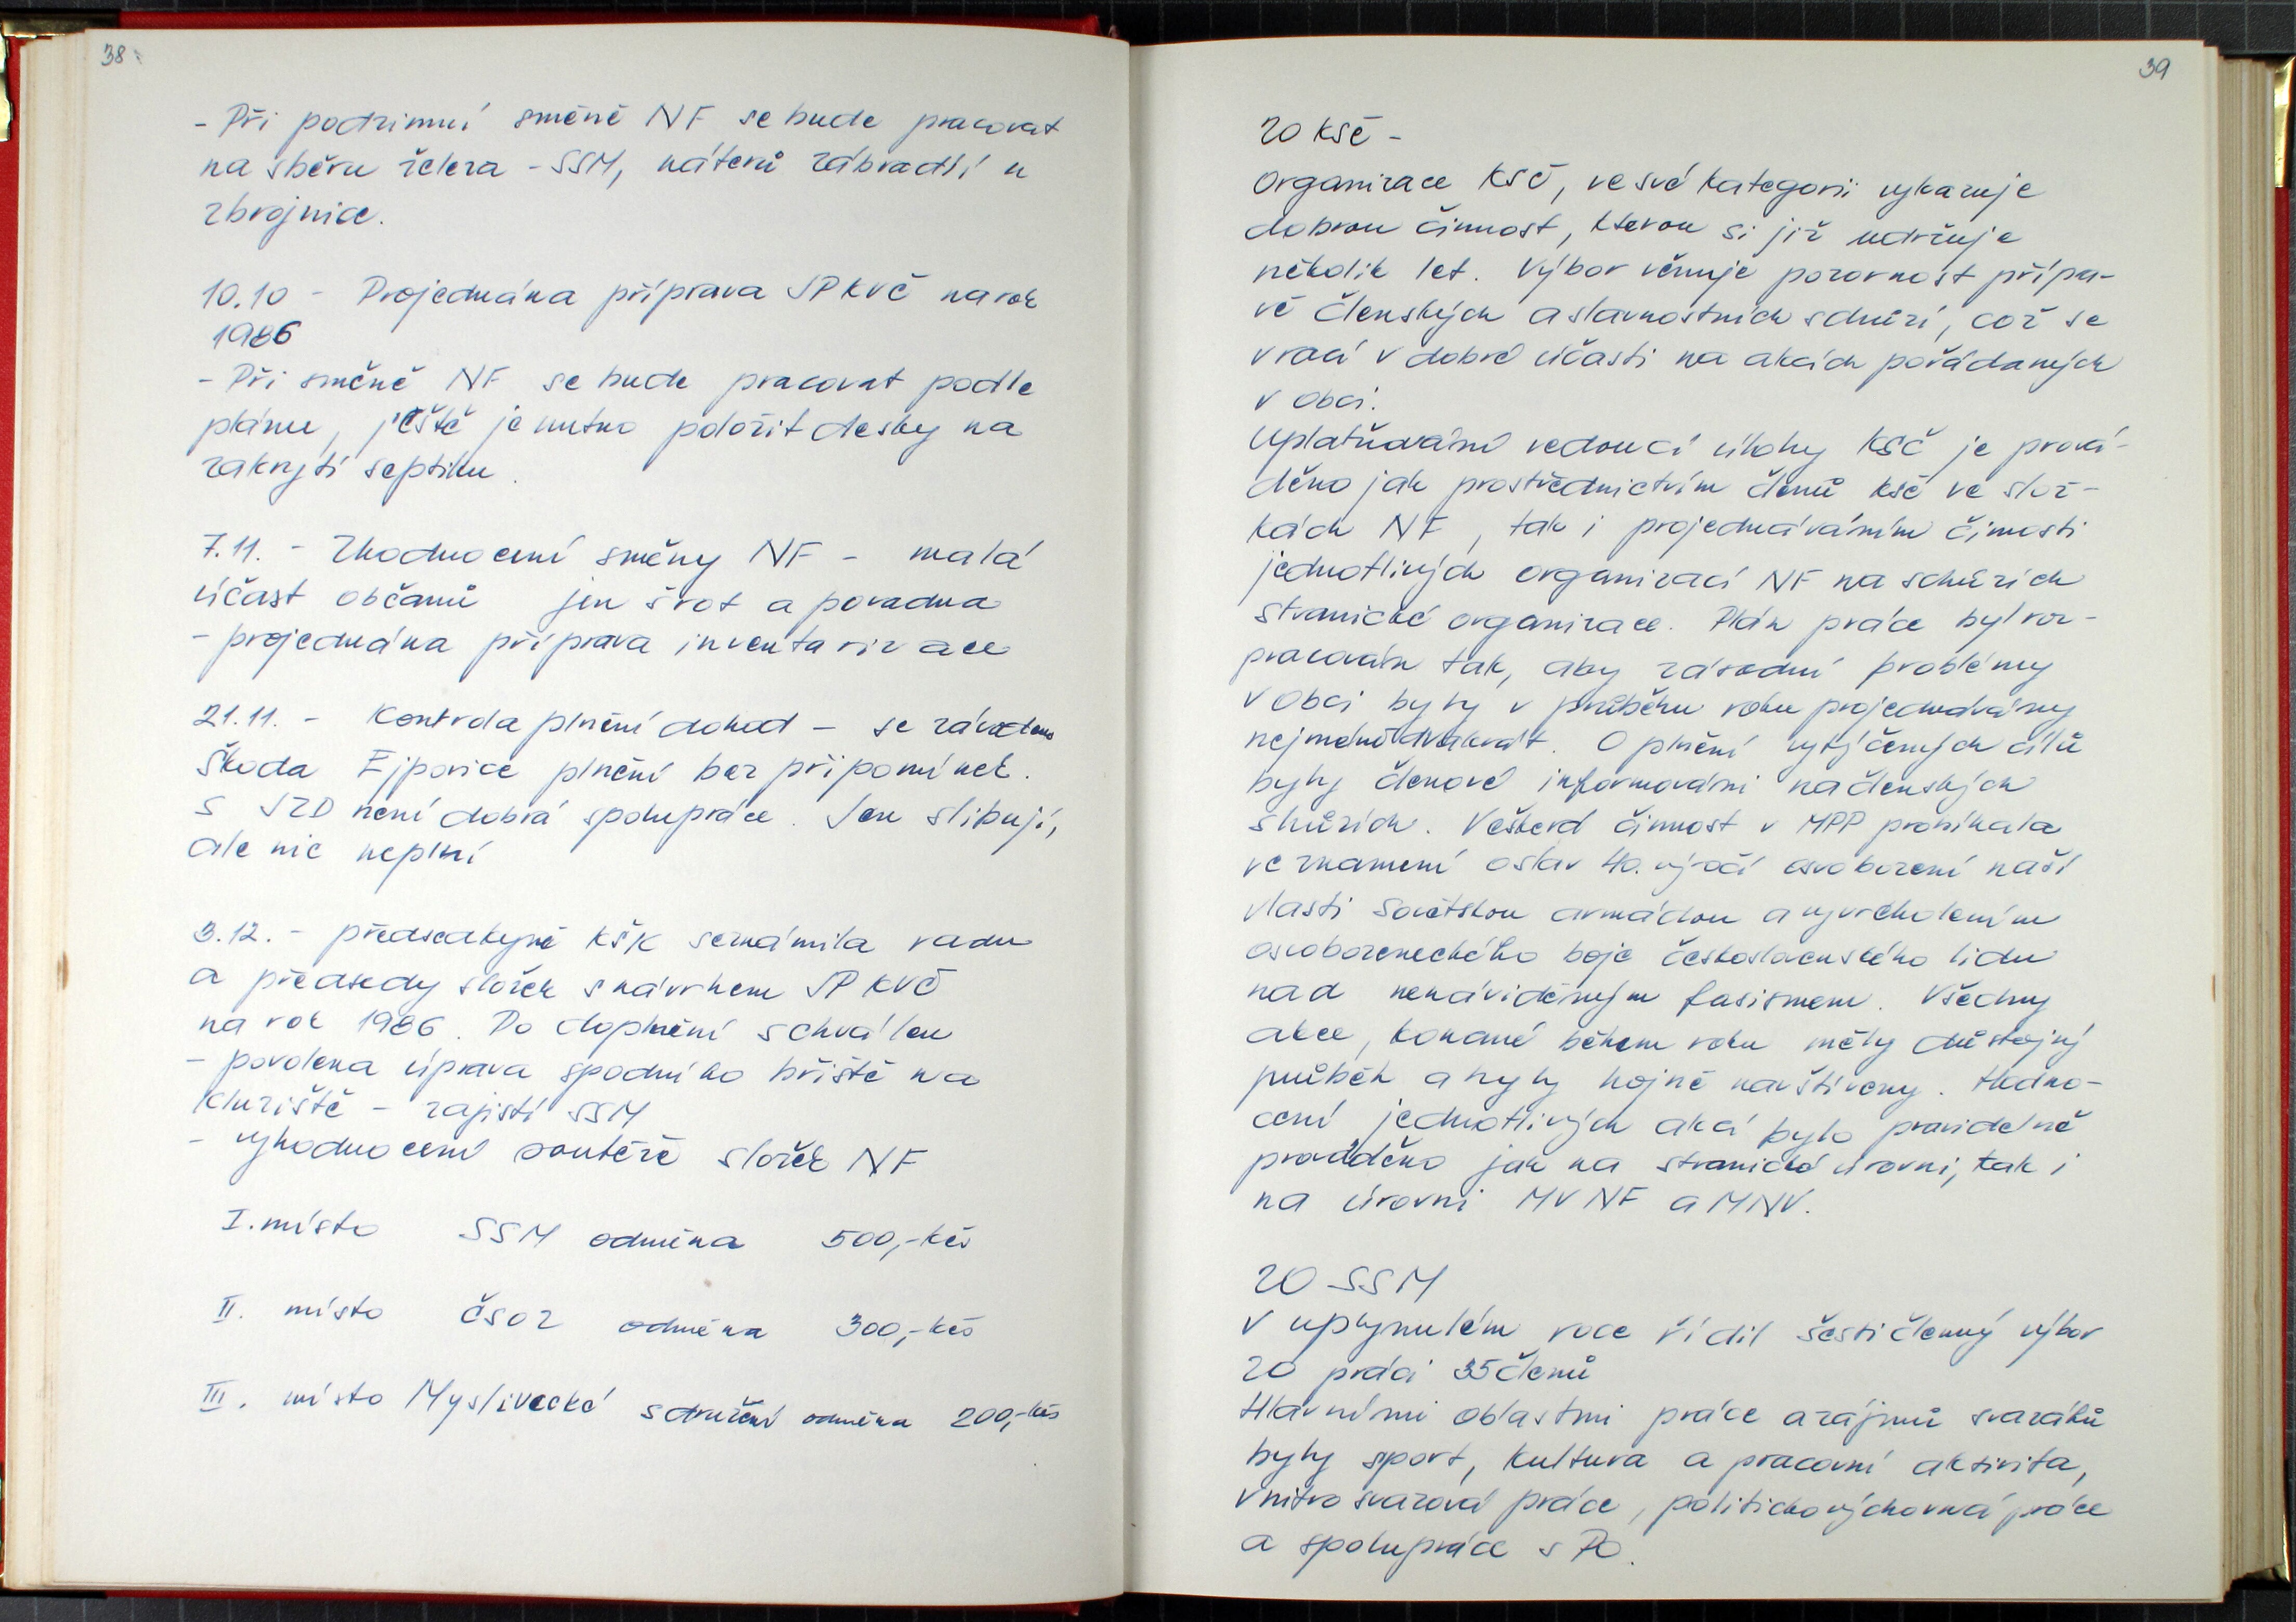 38
- Při podzimní směně NF se bude pracovat
na sběru železa - SSM, nátěrů zábradlí u
zbrojnice.
10.10 - Projednána příprava JPKVČ na rok
1986
- Při směně NF se bude pracovat podle
plánu, ještě je nutno položit desky na
zakrytí septiku.
7.11. - Zhodnocení směny NF - malá
účast občanů jen šrot a poradna
- projednána příprava inventarizace
21.11. - Kontrola plnění dohod - se závodem
Škoda Ejpovice plnění bez připomínek.
S JZD není dobrá spolupráce. Jen slibují,
ale nic neplní
3.12. - předsedkyně KŠK seznámila radu
a předsedy složek s návrhem JPKVČ
na rok 1986. Po doplnění schválen
- povolena úprava spodního hřiště na
kluziště - zajistí SSM
- vyhodnocení soutěže složek NF
I. místo SSM odměna 500,-kčs
II. místo ČSOZ odměna 300,-kčs
III. místo Myslivecké sdružení odměna 200,-kčs
39
ZO KSČ -
Organizace KSČ, ve své kategorii vykazuje
dobrou činnost, kterou si již udržuje
několik let. Výbor věnuje pozornost přípra-
vě členských a slavnostních schůzí, což se
vrací v dobré účasti na akcích pořádaných
v obci.
Uplatňování vedoucí úlohy KSČ je prová-
děno jak prostřednictvím členů KSČ ve slož-
kách NF, tak i projednáváním činnosti
jednotlivých organizací NF na schůzích
stranické organizace. Plán práce byl roz-
pracován tak, aby zásadní problémy
v obci byly v průběhu roku projednávány
nejméně dvakrát. O plnění vytýčených cílů
byly členové informováni na členských
shůzích. Veškerá činnost v MPP pronikala
ve znamení oslav 40. výročí osvobození naší
vlasti Sovětskou armádou a vyvrcholením
osvobozeneckého boje československého lidu
nad nenáviděným fasismem. Všechny
akce, konané během roku měly důstojný
průběh a byly hojně navštíveny. Hodno-
cení jednotlivých akcí bylo pravidelně
prováděno jak na stranické úrovni, tak i
na úrovni MV NF a MNV.
ZO SSM
V uplynulém roce řídil šestičlenný výbor
ZO práci 35 členů
Hlavními oblastmi práce a zájmů svazáků
byly sport, kultura a pracovní aktivita,
vnitrosvazová práce, politickovýchovná práce
a spolupráce s PO.